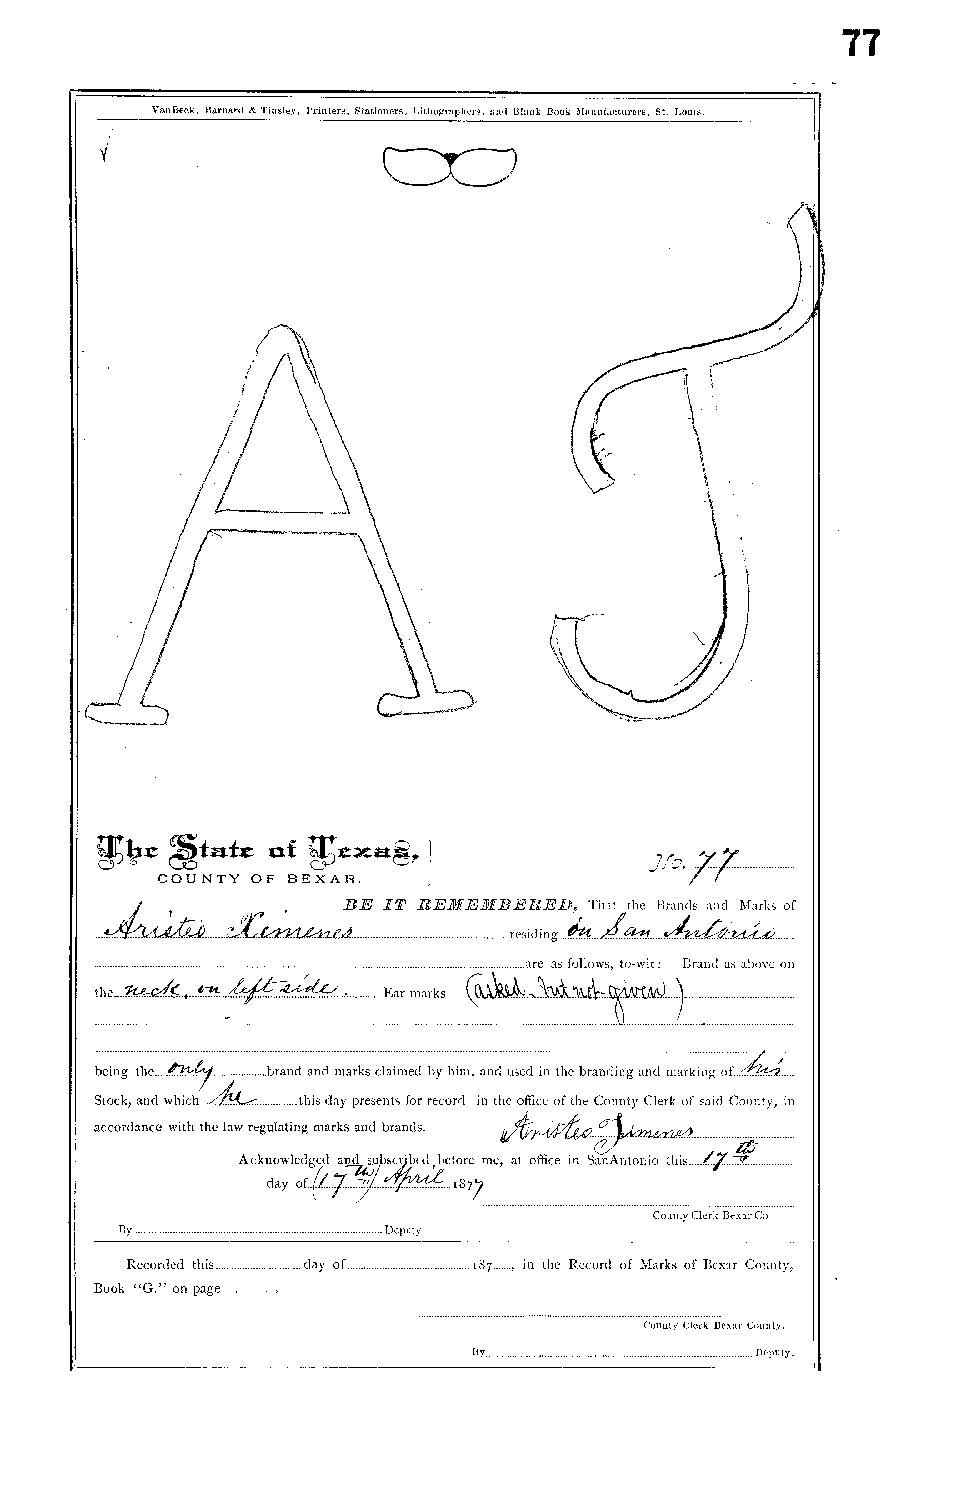 77
VanBeek, Barnard & Tinsley, Printers, Stationers, Lithographers, and Blank Book Manufacturers, St. Louis.
A J
The State of Texas,
No. 77
COUNTY OF BEXAR.
BE IT REMEMBERED, That the Brands and Marks of
Aristeo Ximenes residing on San Antonio
are as follows, to-wit: Brand as above on
the neck, on left side. Ear marks (asked but not given)
being the only brand and marks claimed by him, and used in the branding and marking of his
Stock, and which he this day presents for record in the office of the County Clerk of said County, in
accordance with the law regulating marks and brands. Aristeo Jimenes
Acknowledged and subscribed before me, at office in San Antonio this 17th
day of (17th) April 1877
County Clerk Bexar Co
By Deputy
Recorded this day of 187 , in the Record of Marks of Bexar County,
Book "G." on page
County Clerk Bexar County.
By Deputy.